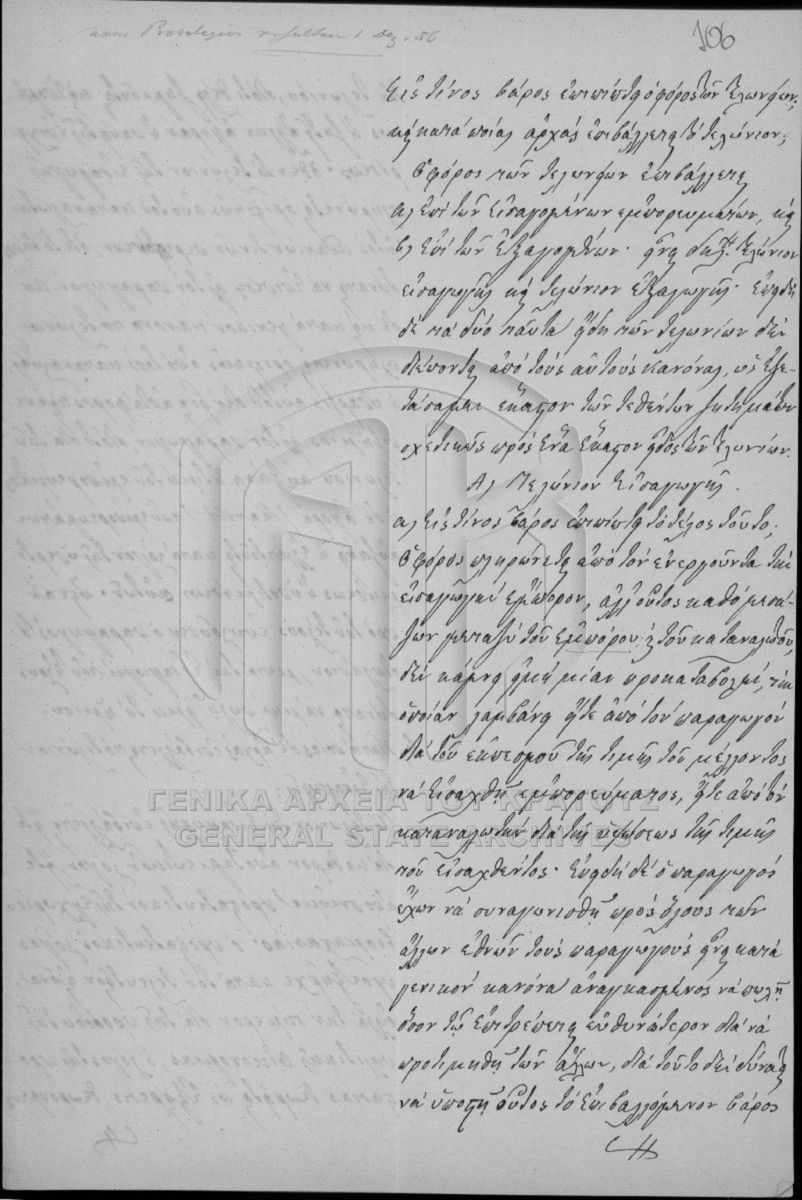 106
Εἰς τίνος βάρος ἐπιπίπτει ὁ φόρος τῶν τελωνείων,
καὶ κατὰ ποίας ἀρχὰς ἐπιβάλλεται τὸ τελώνιον;
Ὁ φόρος τῶν τελωνείων ἐπιβάλλεται
α) ἐπὶ τῶν εἰσαγομένων ἐμπορευμάτων, καὶ
β) ἐπὶ τῶν ἐξαγομένων. τελώνιον
εἰσαγωγῆς καὶ τελώνιον ἐξαγωγῆς. ἐπειδὴ
δὲ τὰ δύο ταῦτα εἴδη τῶν τελωνίων δὲν
διέπονται ἀπὸ τοὺς αὐτοὺς κανόνας, ἂς ἐξε-
τάσωμεν ἕκαστον τῶν τεθέντων ζητημάτων
σχετικῶς πρὸς ἓν ἕκαστον εἶδος τῶν τελωνίων.
Α) Τελώνιον Εἰσαγωγῆς.
α) Εἰς τίνος βάρος ἐπιπίπτει τὸ τέλος τοῦτο;
Ὁ φόρος πληρώνεται ἀπὸ τὸν ἐνεργοῦντα τὴν
εἰσαγωγὴν ἔμπορον, ἀλλ' οὗτος καθὸ μεσά-
ζων μεταξὺ τοῦ ἐμπόρου καὶ τοῦ καταναλωτοῦ,
δὲν κάμνει εἰμὴ μίαν προκαταβολὴν, τὴν
ὁποίαν λαμβάνει εἴτε ἀπὸ τὸν παραγωγὸν
διὰ τοῦ ἐκπεσμοῦ τῆς τιμῆς τοῦ μέλλοντος
νὰ εἰσαχθῇ ἐμπορεύματος, εἴτε ἀπὸ τὸν
καταναλωτὴν διὰ τῆς ὑψώσεως τῆς τιμῆς
τοῦ εἰσαχθέντος. Ἐπειδὴ δὲ ὁ παραγωγὸς
ἔχων νὰ συναγωνισθῇ πρὸς ὅλους τῶν
ἄλλων ἐθνῶν τοὺς παραγωγοὺς εἶναι κατὰ
γενικὸν κανόνα ἀναγκασμένος νὰ πωλῇ
ὅσον τῷ ἐπιτρέπεται εὐθηνότερον διὰ νὰ
προτιμηθῇ τῶν ἄλλων, διὰ τοῦτο δὲν δύναται
νὰ ὑποστῇ οὗτος τὸ ἐπιβαλλόμενον βάρος
ΓΕΝΙΚΑ ΑΡΧΕΙΑ ΤΟΥ ΚΡΑΤΟΥΣ
GENERAL STATE ARCHIVES